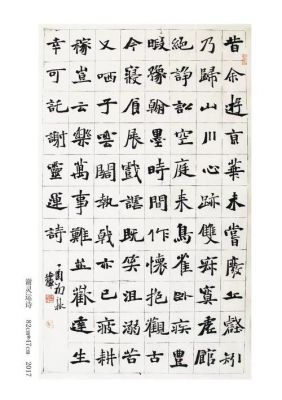 昔余遊京華未嘗廢丘壑矧
乃歸山川心跡雙寂寞虛館
絕諍訟空庭來鳥雀卧疾豐
暇豫翰墨時間作懷抱觀古
今寢展戲謔既笑沮溺苦
又哂子雲閣執戟亦已疲耕
稼豈云樂萬事難並歡達生
幸可託謝靈運詩
丁酉初秋
谢灵运诗 82cm×47cm 2017